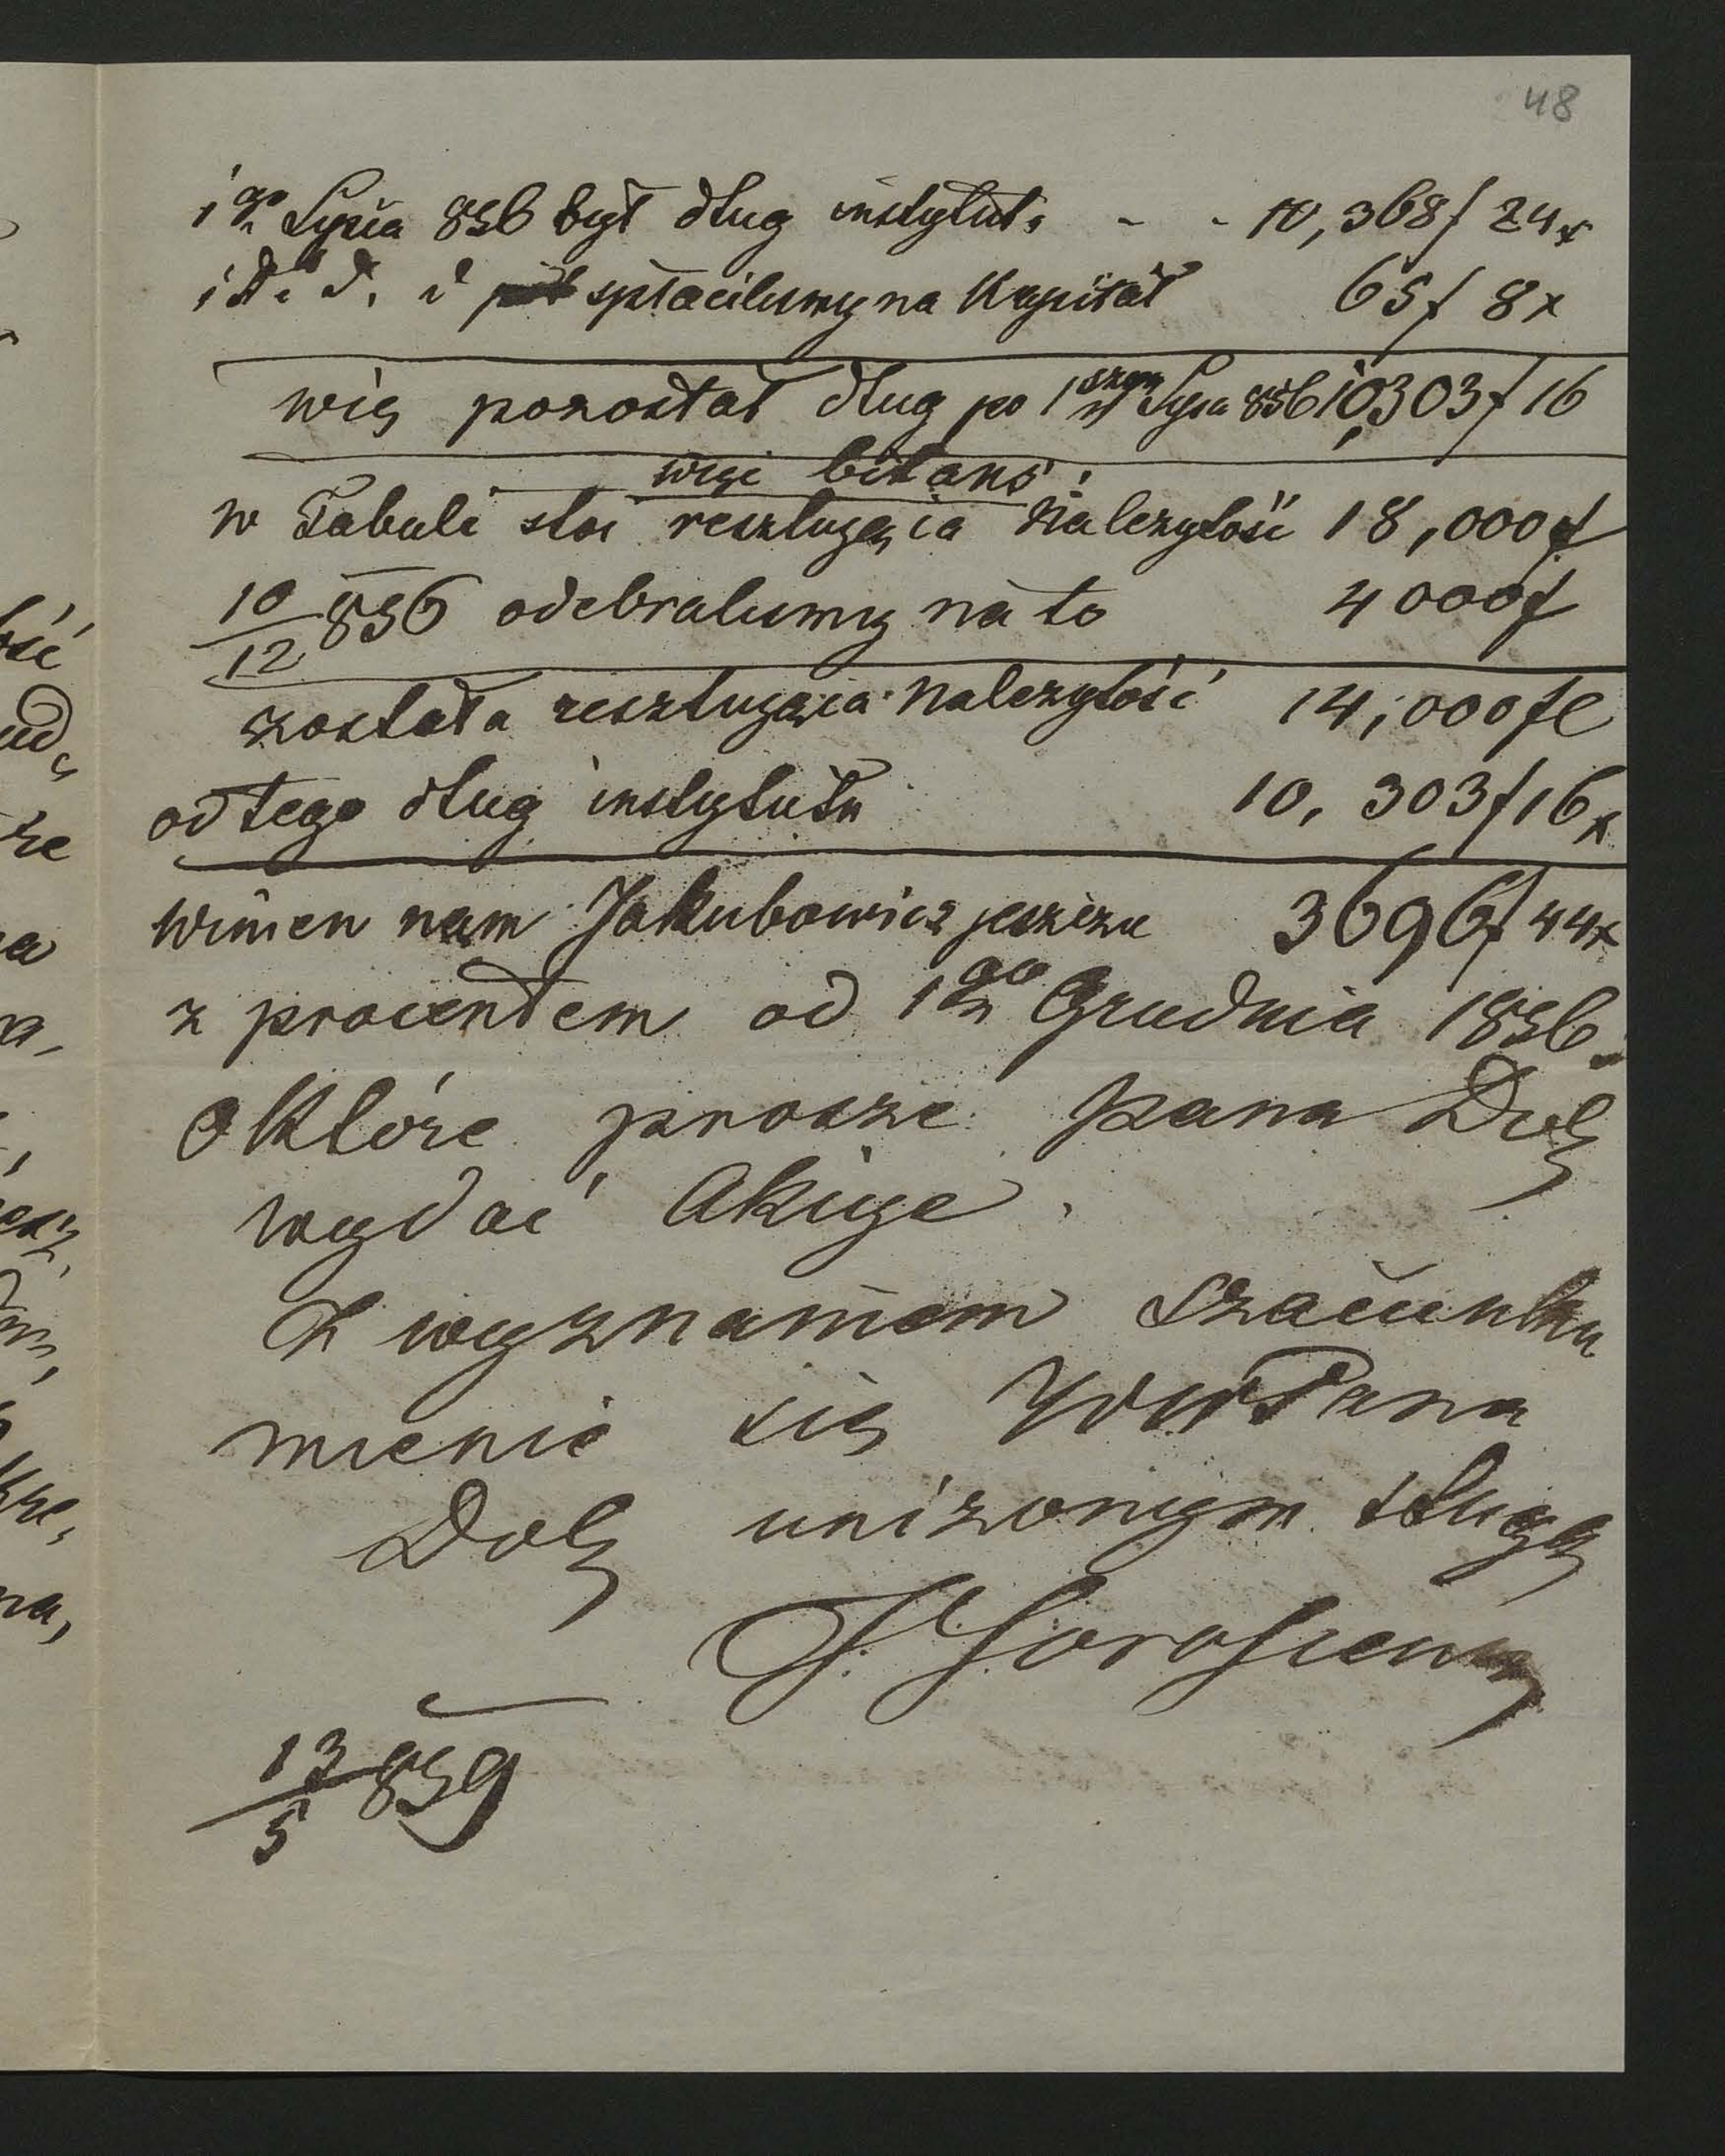 48
1go Lipca 856 był dług instytut: - - 10,368 f 24 x
i d. d. d spłacilismy na Kapitał 65 f 8 x
więc pozostał dług po 1szym Lipca 856 10,303 f 16
więc bilans:
w Tabuli stoi resztująca Należytość 18,000 f
10/12 856 odebralismy na to 4000 f
została resztująca Należytość 14,000 fl
od tego dług instytutu 10,303 f 16 x
winien nam Jakubowicz jeszcze 3696 f 44 x
z procentem od 1go Grudnia 1856.
o Które prosze pana Dob
wydać Akcije.
Z wyznaniem szacunku
mienie się JWPana
Dob uniżonym sługą
13/5 859
ość
że